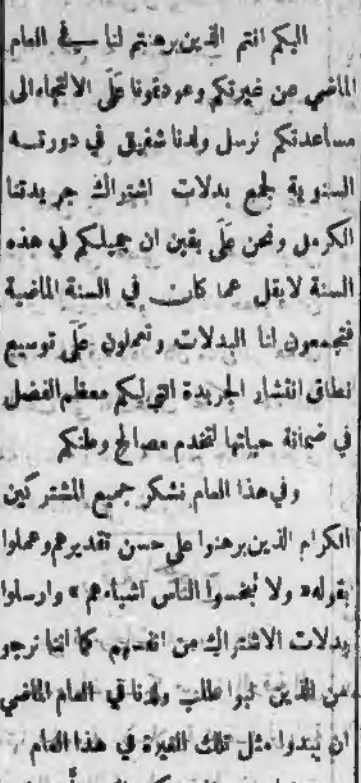 اليكم انتم الذين برهنتم لنا في العام
الماضي عن غيرتكم وعودتمونا على الالتجاء الى
مساعدتكم نرسل ولدنا شفيق في دورته
السنوية لجمع بدلات اشتراك جريدتنا
الكرمل ونحن على يقين ان جميلكم في هذه
السنة لا يقل عما كان في السنة الماضية
فتجمعون لنا البدلات وتعملون على توسيع
نطاق انتشار الجريدة التي لكم معظم الفضل
في ضمانة حياتها لتخدم مصالح وطنكم
وفي هذا العام نشكر جميع المشتركين
الكرام الذين برهنوا على حسن تقديرهم وعملوا
بقوله « ولا تبخسوا الناس اشياءهم » وارسلوا
بدلات الاشتراك من انفسهم كما اننا نرجو
من الذين لبوا طلب ولدنا في العام الماضي
ان يبدوا مثل تلك الغيرة في هذا العام